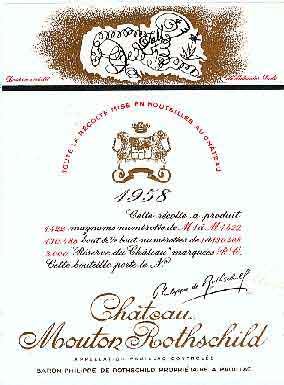 TOUTE LA RÉCOLTE MISE EN BOUTEILLES AU CHÂTEAU
1958
Cette récolte a produit
magnums numérotés de M1 à M1422
bout. & ½ bout. numérotées de 1 à
"Réserve du Château" marquées R.C.
Cette bouteille porte le No
Philippe de Rothschild
Château
Mouton Rothschild
APPELLATION PAUILLAC CONTRÔLÉE
BARON PHILIPPE DE ROTHSCHILD PROPRIÉTAIRE A PAUILLAC